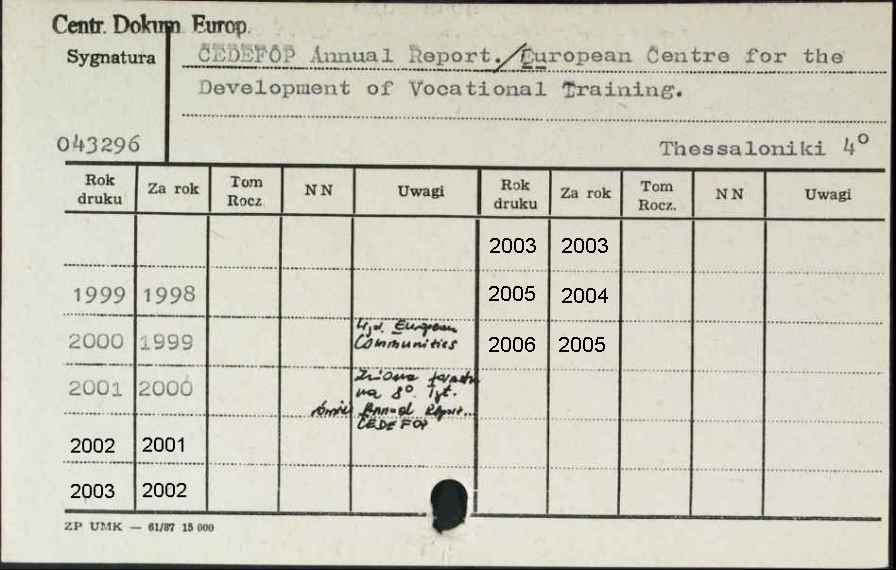 Centr. Dokum. Europ.
Sygnatura
CEDEFOP Annual Report./European Centre for the
Development of Vocational Training.
043296
Thessaloniki 4°
Rok druku Za rok Tom Rocz. NN Uwagi Rok druku Za rok Tom Rocz. NN Uwagi
2003 2003
1999 1998 2005 2004
2000 1999 Wyd. European Communities 2006 2005
2001 2000 Zmiana na 8°. Tyt. Annual Report.. CEDEFOP
2002 2001
2003 2002
ZP UMK — 61/87 15 000